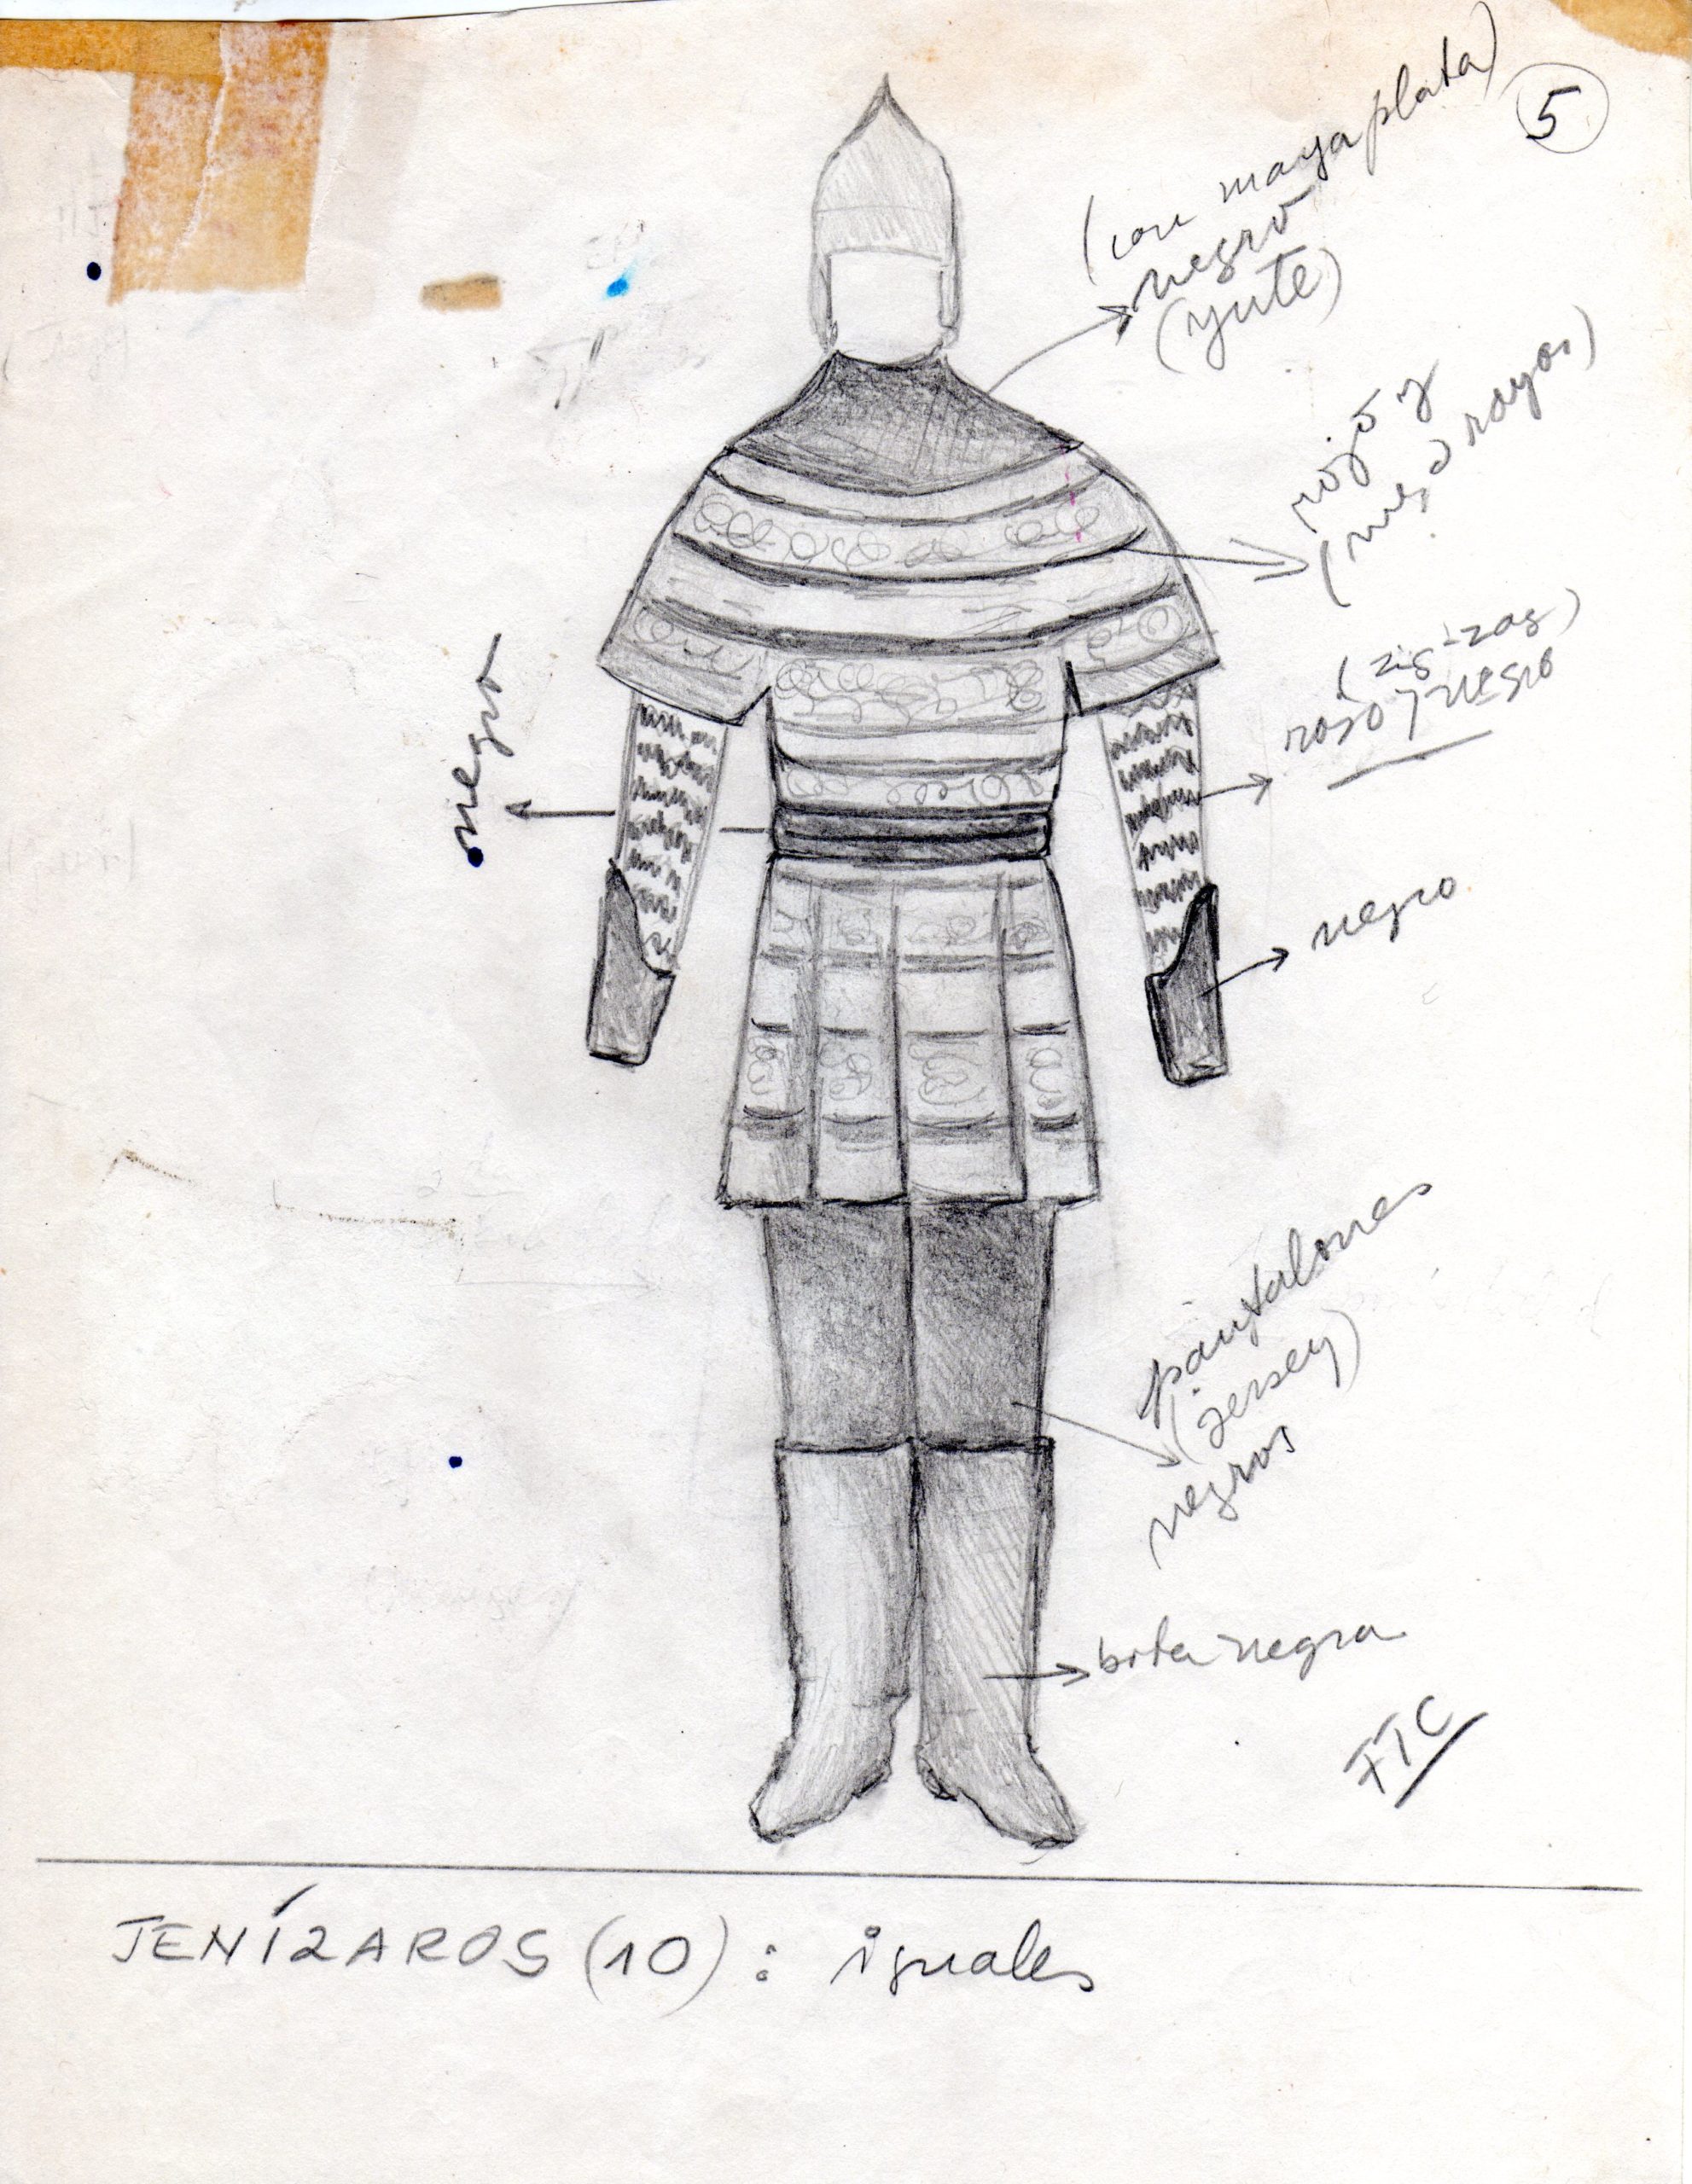 5
(con maya plata)
negro
(yute)
rojo y
negro
(zig-zag)
rojo y negro
negro
pantalones
(jersey)
negros
bota negra
FTC
JENÍZAROS (10): iguales